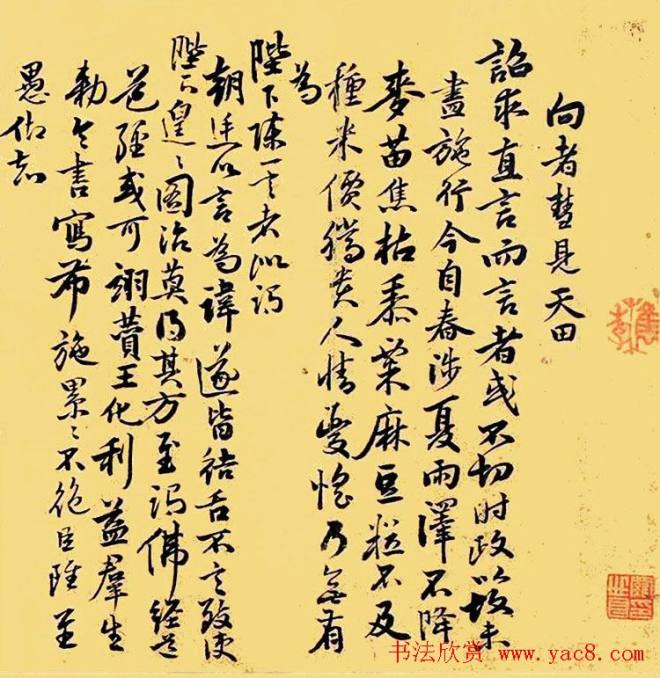 向者彗見天田
詔求直言而言者或不切時政以故未
盡施行今自春涉夏雨澤不降
麥苗焦枯黍粟麻豆粒不及
種米價騰貴人情憂惶乃無有
為
陛下陳一言者似謂
朝廷以言為諱遂皆結舌不言致使
陛下遑〻圖治莫得其方至謂佛經道
經或可翊贊王化利益羣生
勅令書寫布施累〻不絕臣雖至
愚
书法欣赏 www.yac8.com